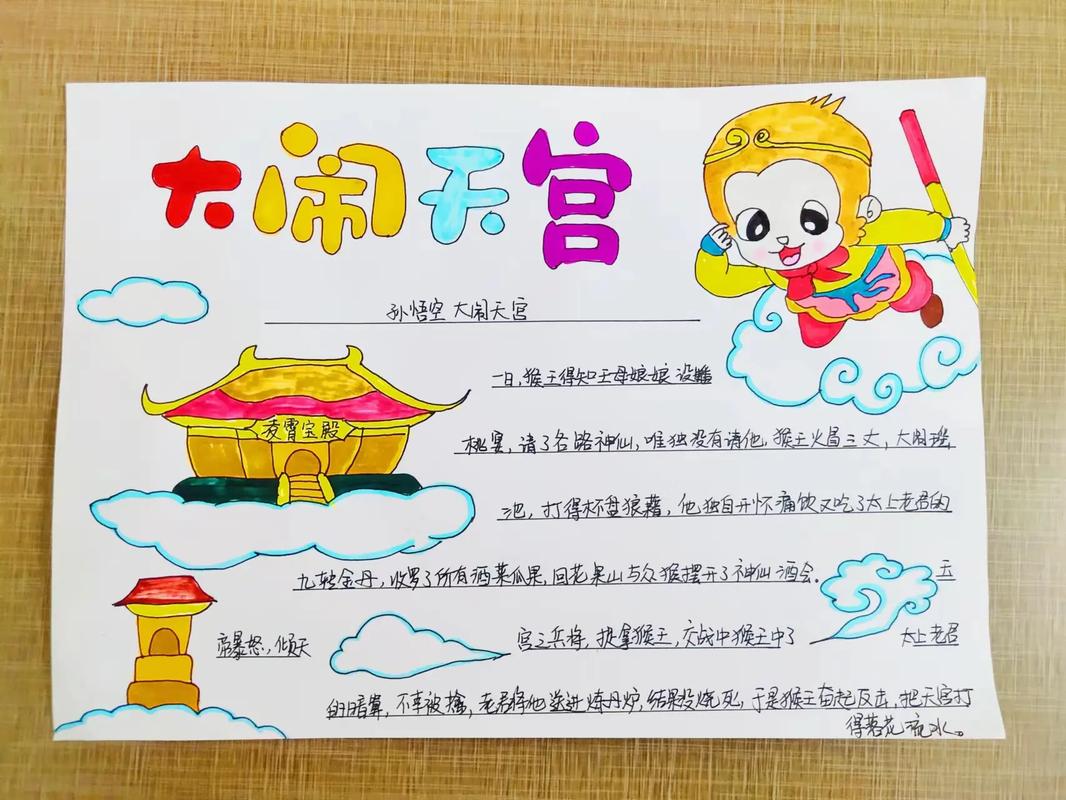 大闹天宫
孙悟空 大闹天宫
凌霄宝殿
一日,猴王得知王母娘娘 设蟠
桃宴,请了各路神仙,唯独没有请他,猴王火冒三丈,大闹瑶
池,打得杯盘狼藉,他独自开怀痛饮又吃了太上老君的
九转金丹,收罗了所有酒菜瓜果,回花果山与众猴摆开了神仙酒会。 玉
帝暴怒,倾天 宫之兵将,捉拿猴王,交战中猴王中了 太上老君
的暗算,不幸被擒,老君将他送进炼丹炉,结果没烧死,于是猴王奋起反击,把天宫打
得落花流水。